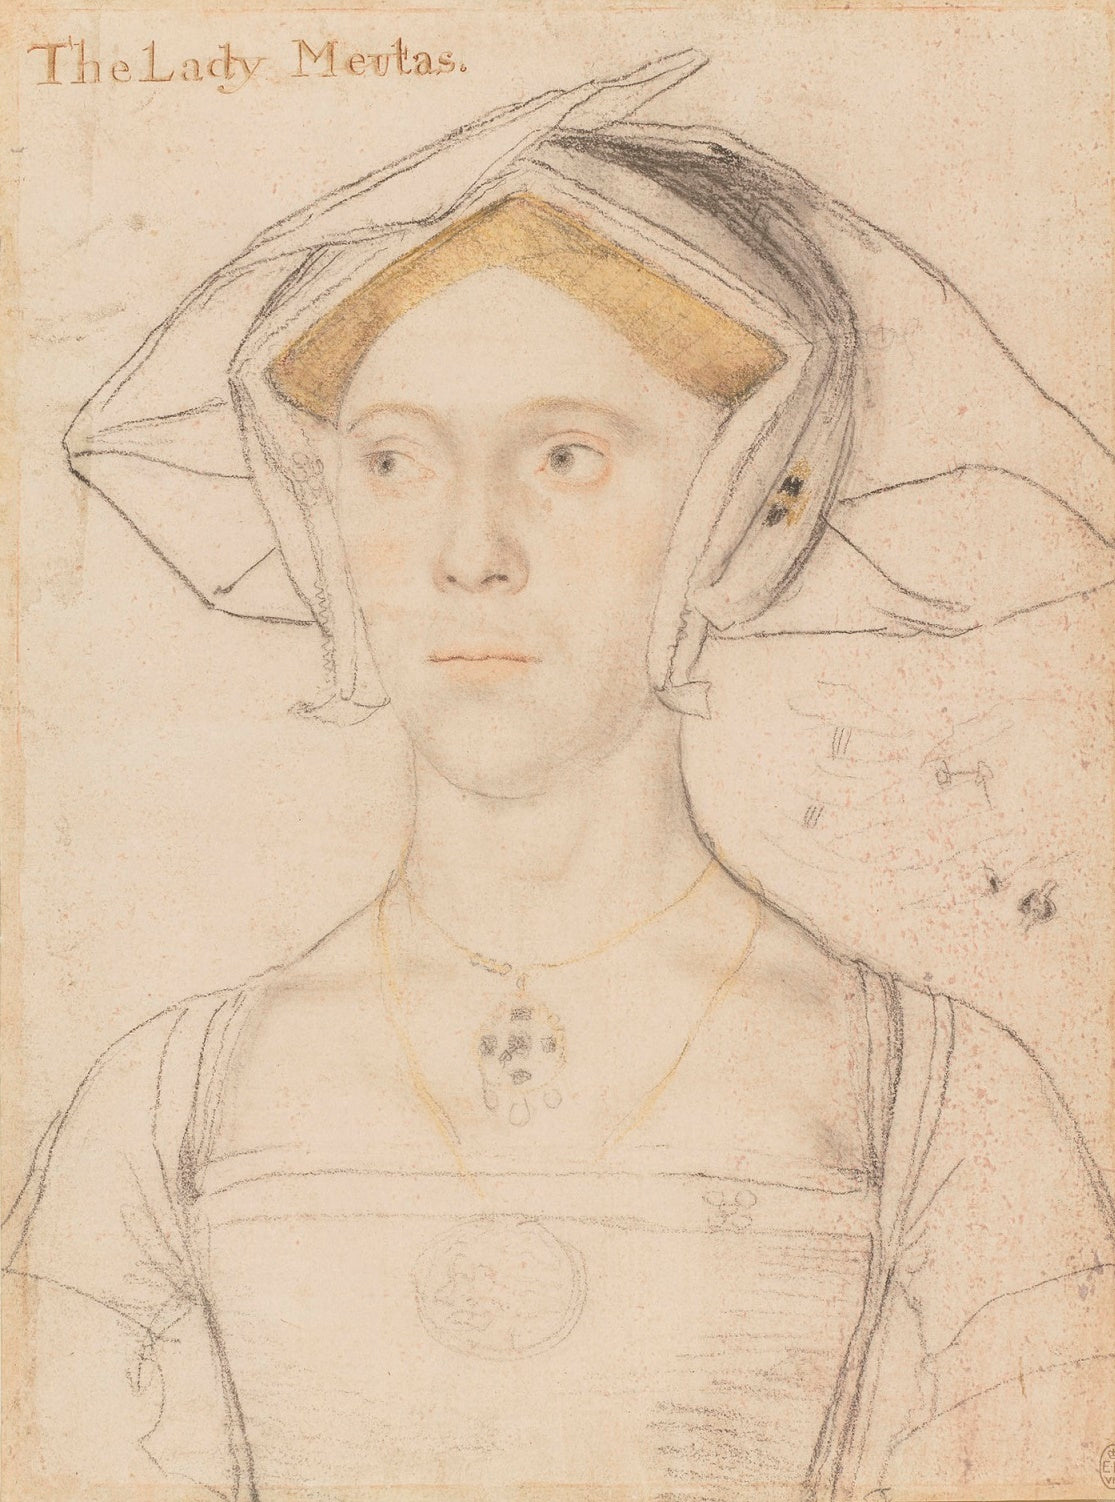 The Lady Meutas.